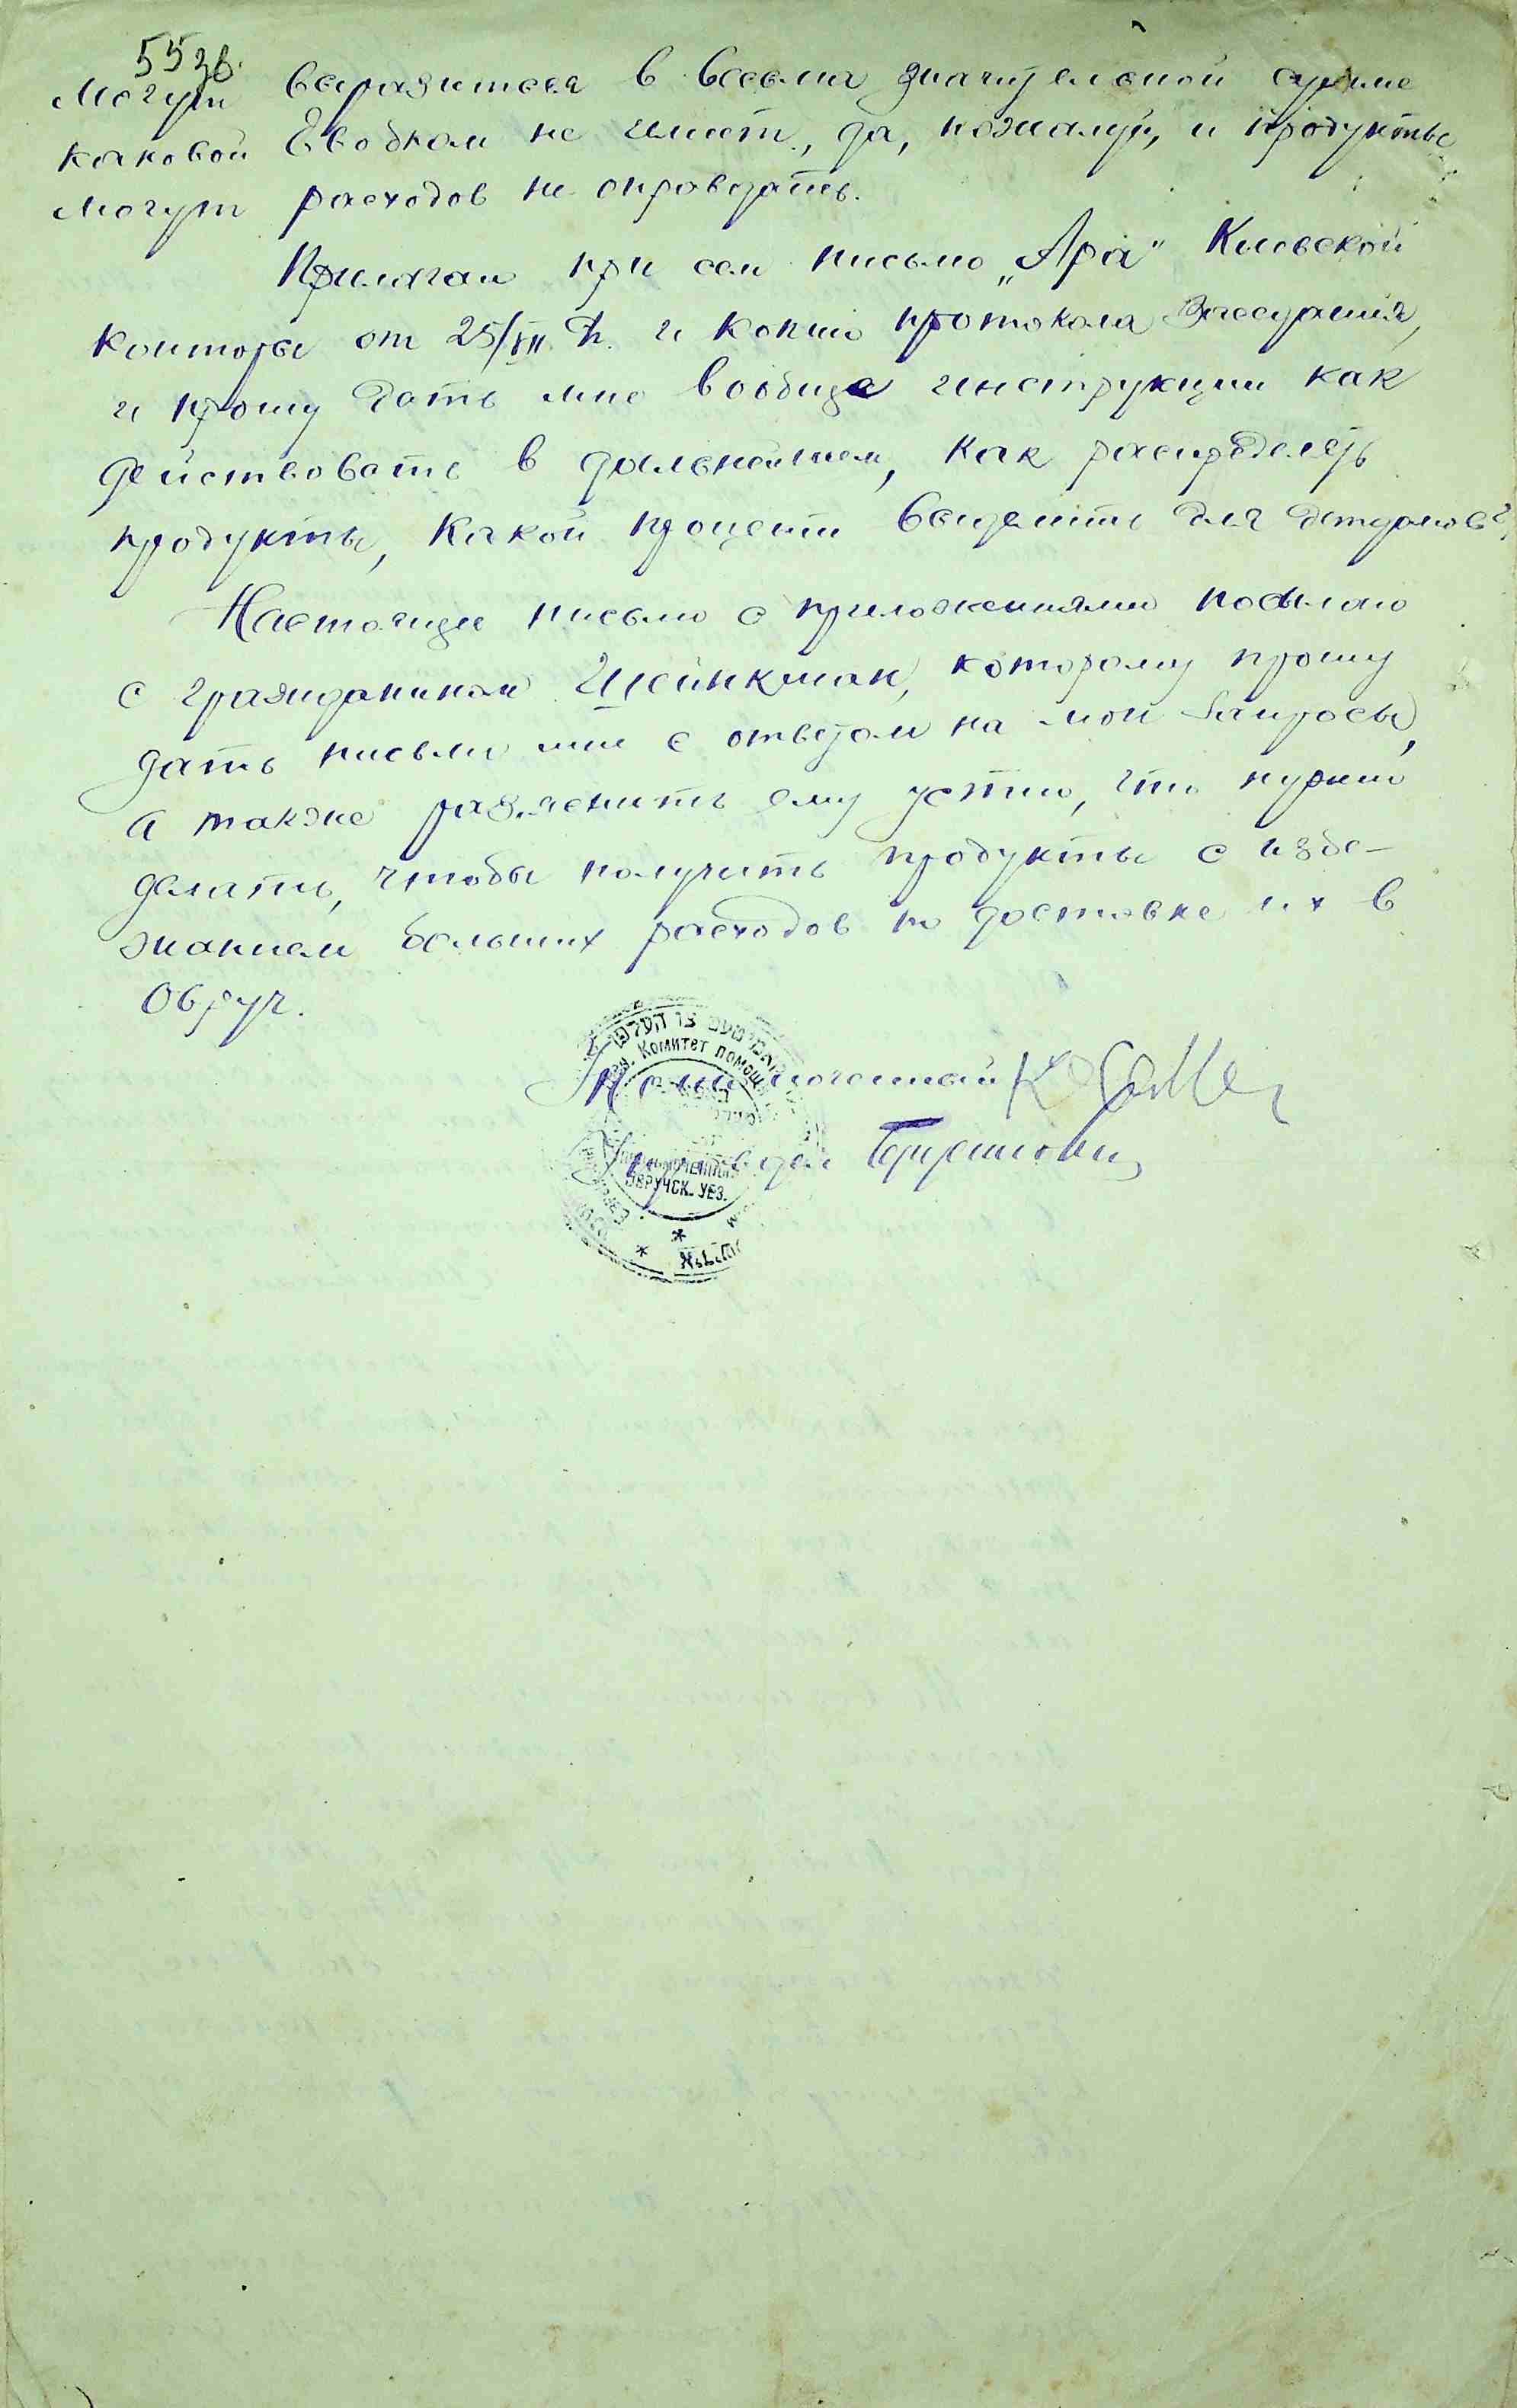 55 зв.
могут выразиться в весьма значительной сумме
каковой Евобком не имеет, да, пожалуй, и продукты
могут расходов не оправдать.
Прилагаю при сем письмо „Ара" Киевской
конторы от 25/VII и копию протокола заседания,
и прошу дать мне вообще инструкции как
действовать в дальнейшем, как распределять
продукты, какой процент выделить для детдомов?
Настоящее письмо с приложениями посылаю
с гражданином Шейнкман, которому прошу
дать письмо мне с ответом на мои запросы,
а также раз'яснить ему устно, что нужно
делать, чтобы получить продукты с избе-
жанием больших расходов по доставке их в
Овруч.
Комитет помощи
Уполномоченный
ОВРУЧСК. УЕЗ.